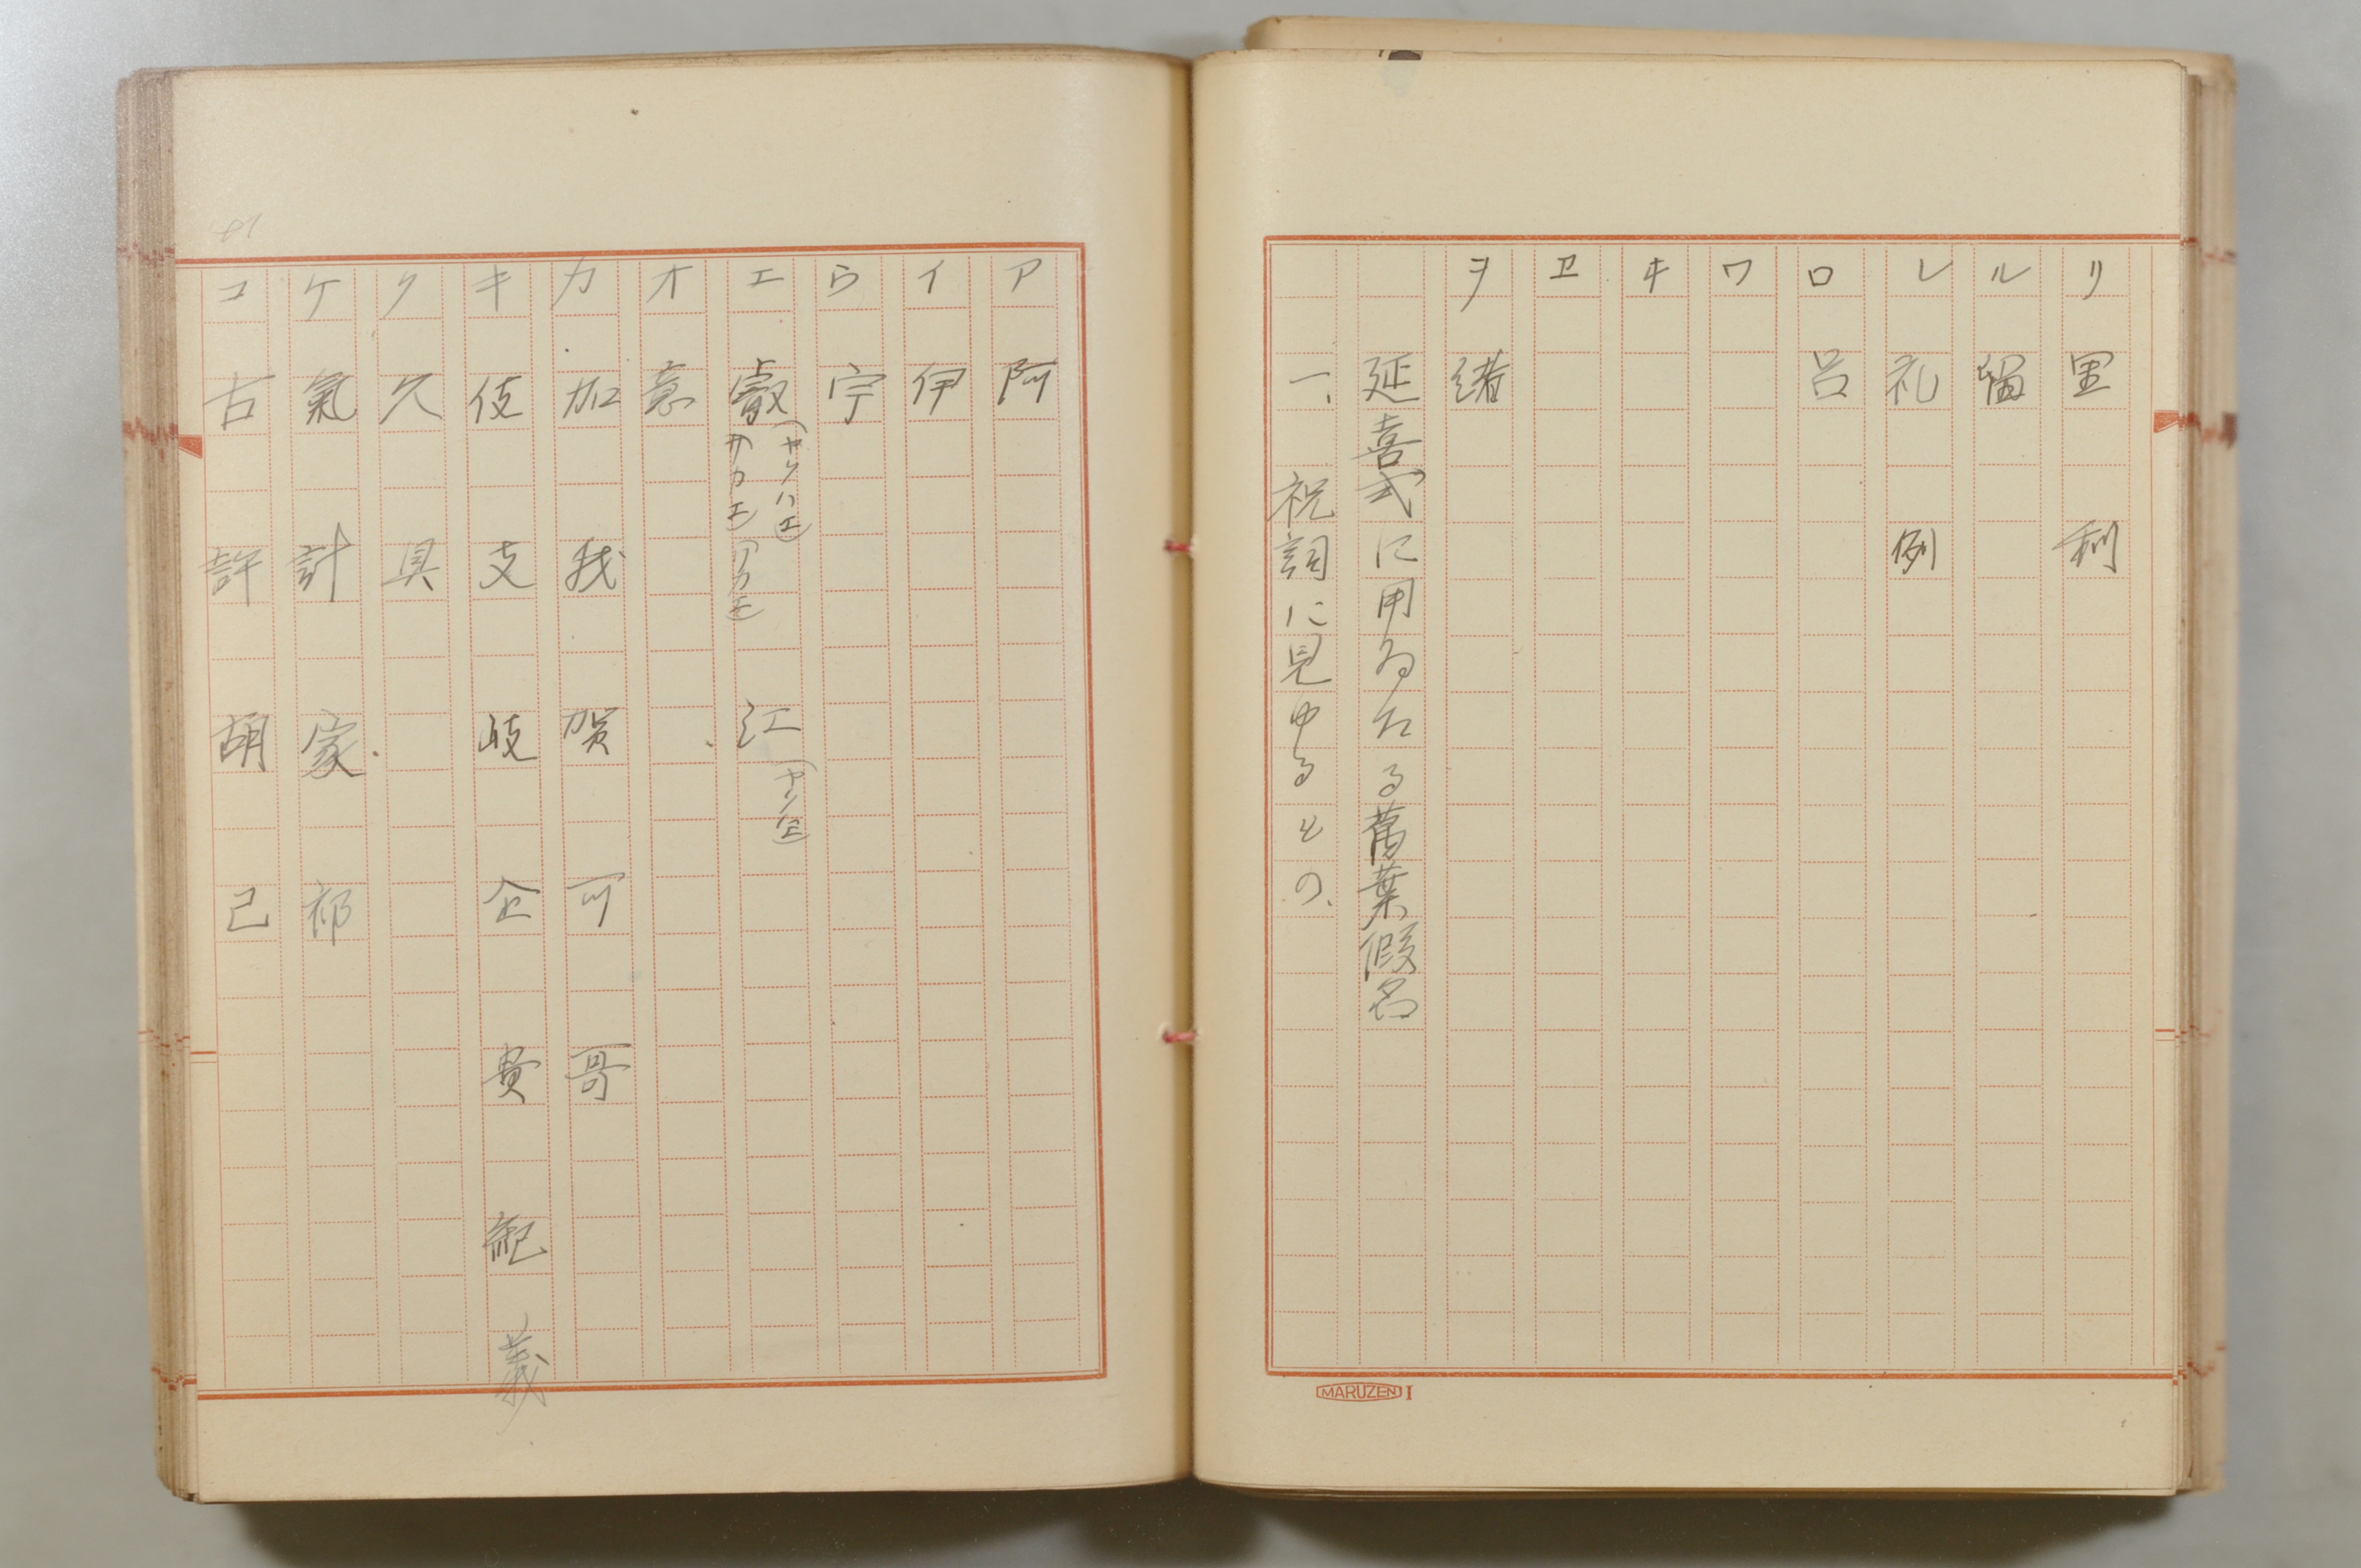 リ 里 利
ル 留
レ 礼 例
ロ 呂
ワ
ヰ
ヱ
ヲ 緒
延喜式に用ゐたる萬葉假名
一、祝詞に見ゆるもの、
MARUZEN I
ア 阿
イ 伊
ウ 宇
エ 叡 (ヤソハエ) (サカエ) 江 (ヤソ江)
オ 意
カ 加 我 賀 可 哥
キ 伎 支 岐 企 貴 紀 義
ク 久 具
ケ 氣 計 家 祁
コ 古 許 胡 己